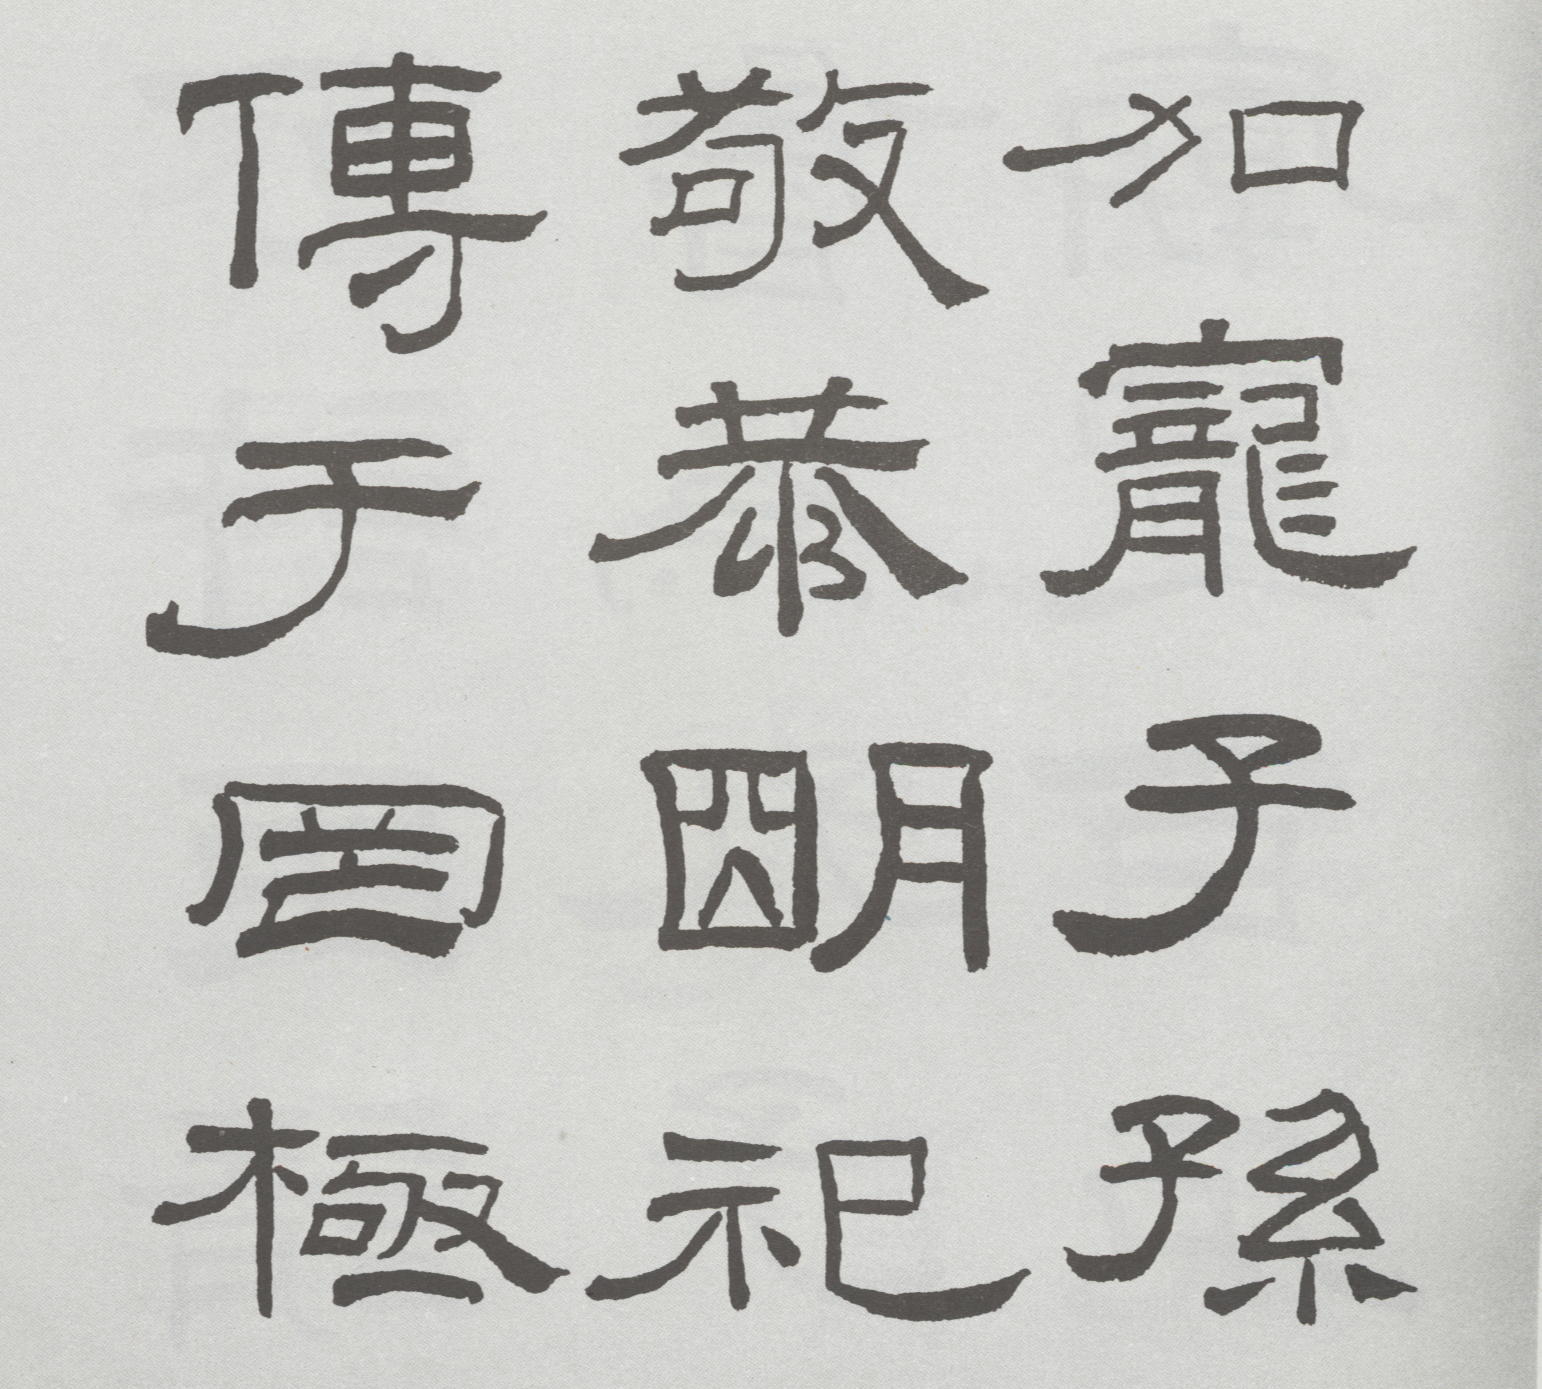 加寵子孫
敬恭明祀
傳于罔極